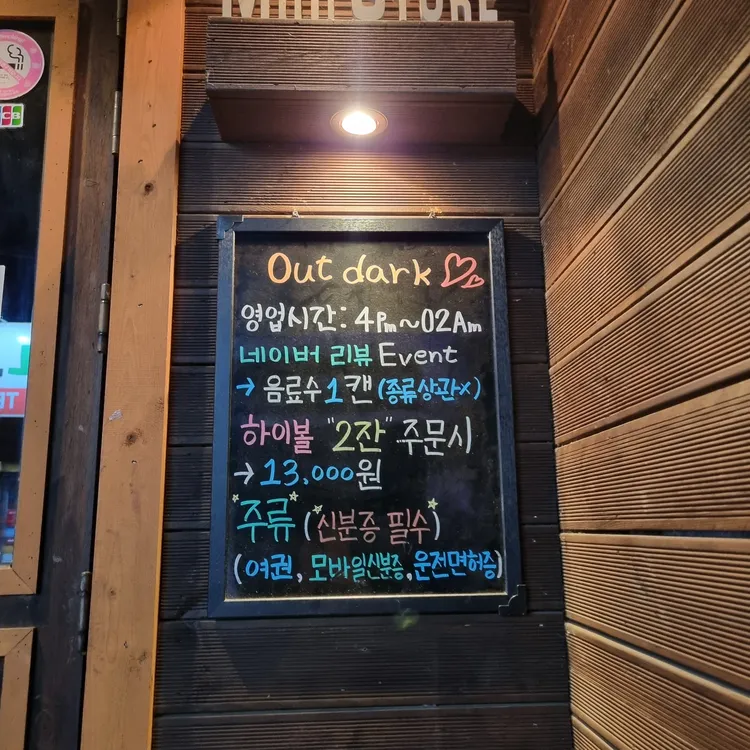 STORE
JCB
Out dark
영업시간: 4Pm~02Am
네이버 리뷰 Event
→ 음료수 1캔 (종류상관×)
하이볼 "2잔" 주문시
→ 13.000원
주류 (신분증 필수)
(여권, 모바일신분증, 운전면허증)